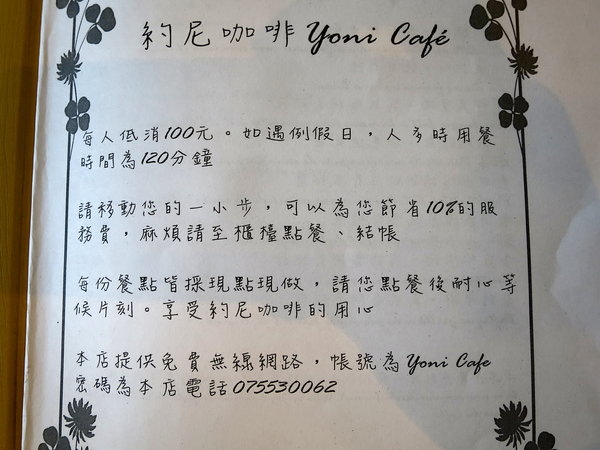 約尼咖啡 Yoni Café
每人低消100元。如遇例假日，人多時用餐
時間為120分鐘
請移動您的一小步，可以為您節省10%的服
務費，麻煩請至櫃檯點餐、結帳
每份餐點皆採現點現做，請您點餐後耐心等
候片刻。享受約尼咖啡的用心
本店提供免費無線網路，帳號為Yoni Cafe
密碼為本店電話075530062